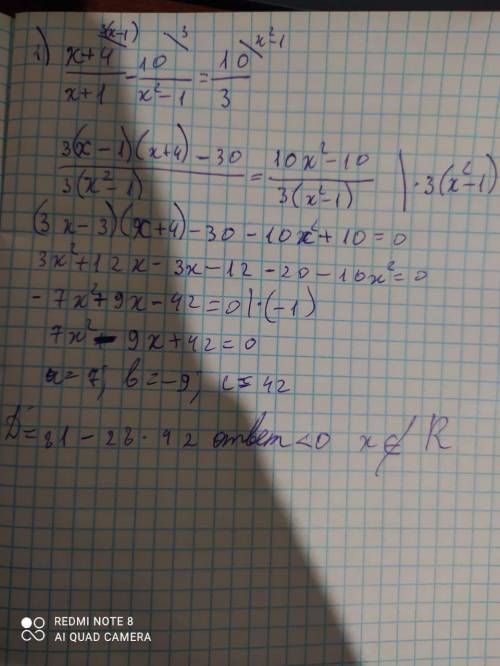 1) (x+4)/(x+1) - 10/(x²-1) = 10/3
3(x-1) 3 x²-1
(3(x-1)(x+4)-30)/(3(x²-1)) = (10x²-10)/(3(x²-1)) | ·3(x²-1)
(3x-3)(x+4)-30-10x²+10=0
3x²+12x-3x-12-20-10x²=0
-7x²+9x-42=0|·(-1)
7x²-9x+42=0
a=7; b=-9; c=42
D=81-28·42 ответ<0 x∉R
REDMI NOTE 8
AI QUAD CAMERA